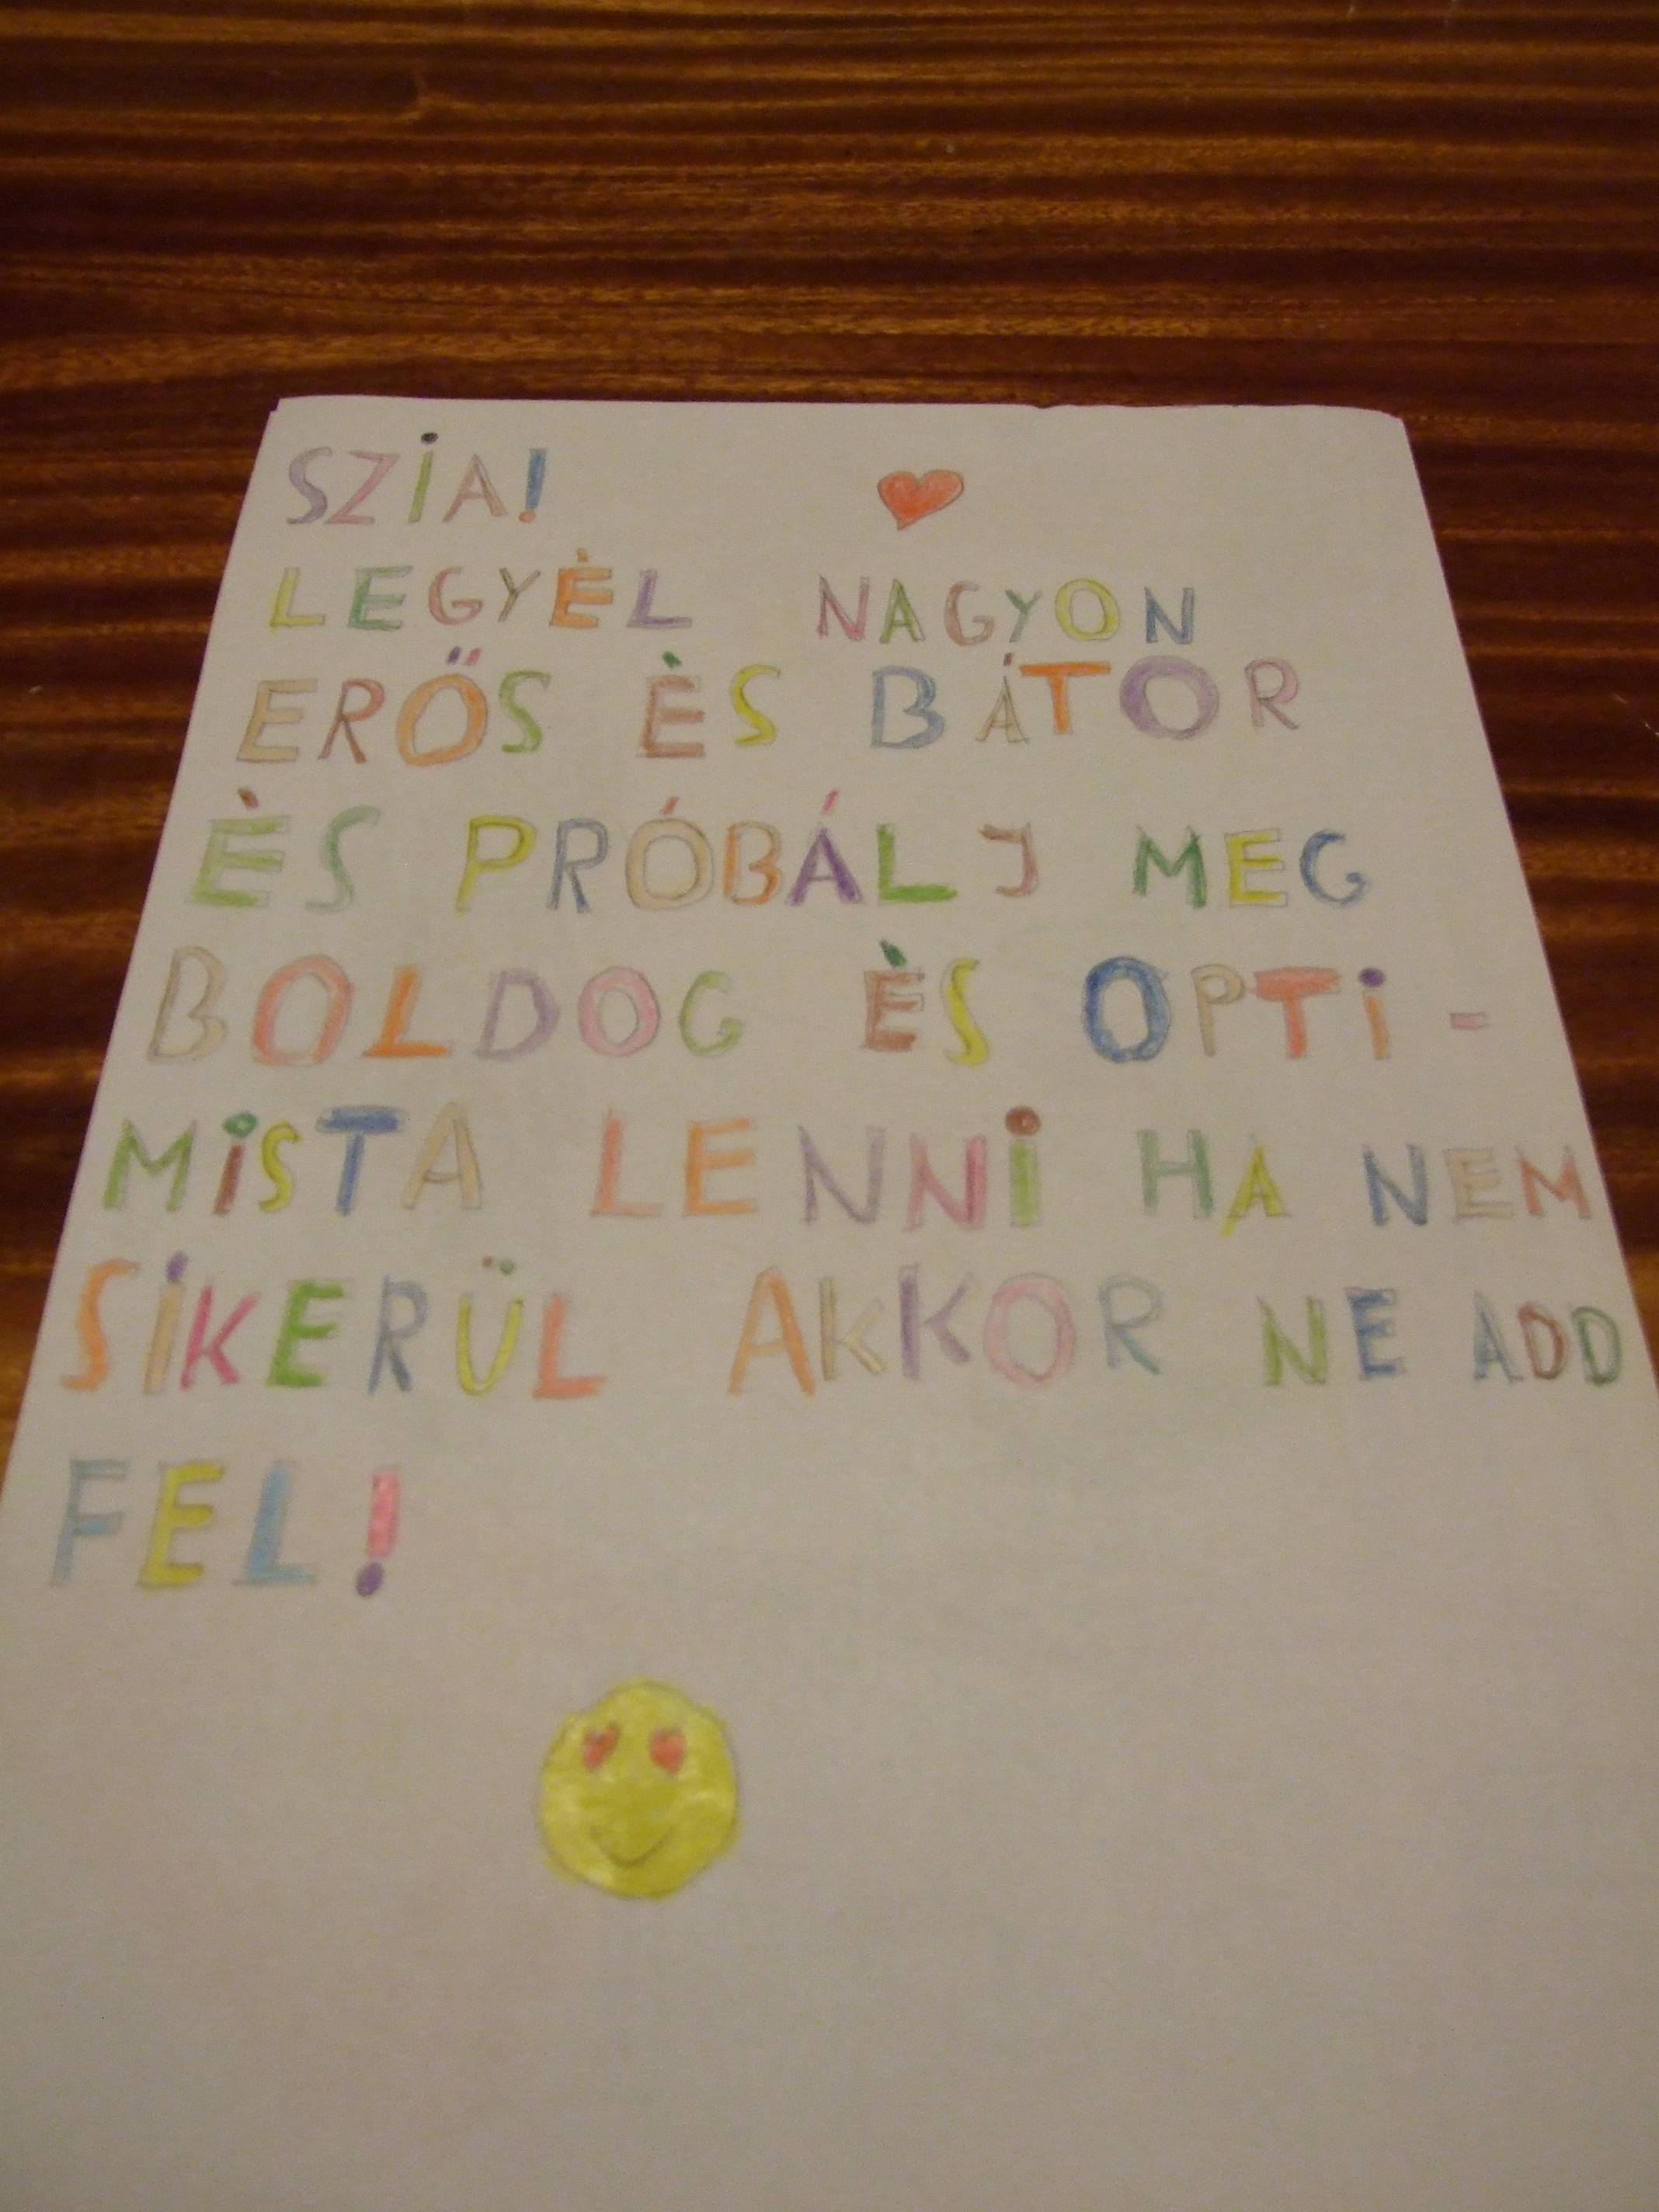 SZiA!
LEGYÈL NAGYON
ERŐS ÈS BÁTOR
ÈS PRÓBÁLJ MEG
BOLDOG ÈS OPTi-
MiSTA LENNi HA NEM
SiKERÜL AKKOR NE ADD
FEL!